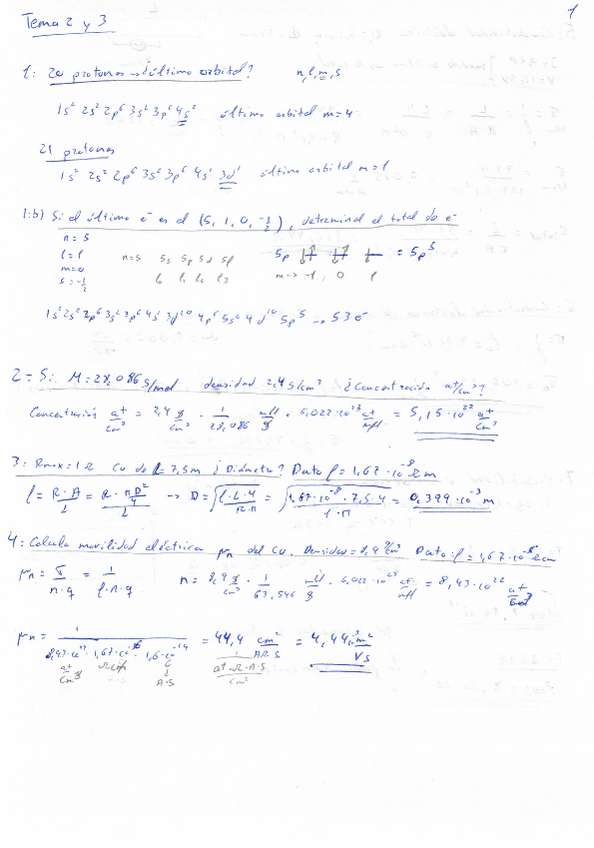 Tema 2 y 3
1
1: 20 protones → ¿último orbital? n, l, m, s
1s² 2s² 2p⁶ 3s² 3p⁶ 4s² último orbital m=4
21 protones
1s² 2s² 2p⁶ 3s² 3p⁶ 4s² 3d¹ último orbital m=1
1:b) Si el último e⁻ es el (5, 1, 0, -1/2), determina el total de e⁻
n=5
l=1 n=5 5s 5p 5d 5f 5p = 5p⁵
m=0 l₀ l₁ l₂ l₃ m → -1, 0 1
s=-1/2
1s² 2s² 2p⁶ 3s² 3p⁶ 4s² 3d¹⁰ 4p⁶ 5s² 4d¹⁰ 5p⁵ → 53 e⁻
2 = Si M=28,086 g/mol densidad 2,4 g/cm³ ¿Concentración at/cm³?
Concentración at/cm³ = 2,4 g/cm³ · 1/28,086 mol/g · 6,022·10²³ at/mol = 5,15·10²² at/cm³
3: Rmax=1Ω Cu de l=7,5m ¿Diámetro? Dato ρ=1,67·10⁻⁸ Ωm
ρ = R·A/L = R·πD²/4/L → D = √(ρ·L·4/R·π) = √(1,67·10⁻⁸·7,5·4/1·π) = 0,399·10⁻³ m
4: Calcula movilidad eléctrica μn del Cu. Densidad=8,9 g/cm³ Dato: ρ=1,67·10⁻⁶ Ωcm
μn = σ/n·q = 1/ρ·n·q n = 8,9 g/cm³ · 1/63,546 mol/g · 6,022·10²³ at/mol = 8,43·10²² at/cm³
μn = 1/8,43·10²²·1,67·10⁻⁶·1,6·10⁻¹⁹ = 44,4 cm²/AΩS = 4,44·10⁻³ m²/VS
at/cm³ Ωcm C at·Ω·A·S/cm²
A·S